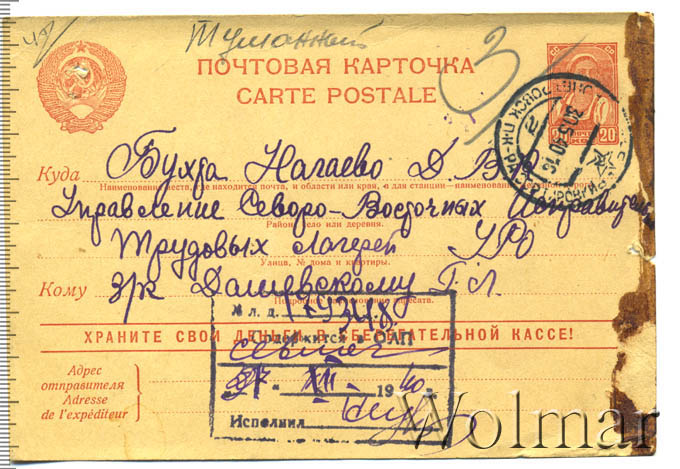 Туманный
3
ПОЧТОВАЯ КАРТОЧКА
CARTE POSTALE
20 20
Куда Бухта Нагаево Д.В.К.
Наименование места, где находится почта, и области или края, а для станции — наименование железной дороги
Управление Северо-Восточных Исправительно
Район, село или деревня.
Трудовых Лагерей УРО
Улица, № дома и квартиры.
Кому з/к Дашевскому Г. Л.
Подробное наименование адресата.
№ л. д.
ХРАНИТЕ СВОИ ДЕНЬГИ В СБЕРЕГАТЕЛЬНОЙ КАССЕ!
Содержится в ОЛП
Адрес отправителя
Adresse de l'expéditeur
XII 1940
Исполнил
Wolmar